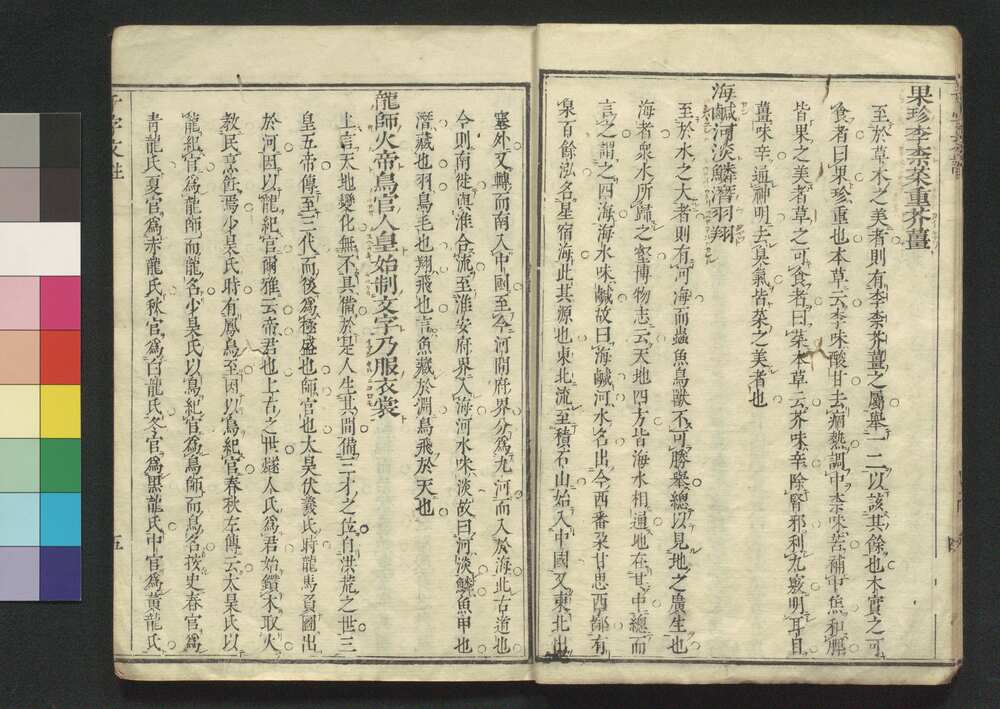 果珍李柰菜重芥薑
至於草木之美者則有李柰芥薑之屬舉一二以該其餘也木實之可
食者曰果珍重也本草云李味酸甘去痼熱調中柰味苦補中焦和脾
皆果之美者草之可食者曰菜本草云芥味辛除腎邪利九竅明耳目
薑味辛通神明去臭氣皆菜之美者也
海鹹河淡鱗潛羽翔
至於水之大者則有河海而蟲魚鳥獸不可勝舉總以見地之廣生也
海者衆水所歸之壑博物志云天地四方皆海水相通地在其中總而
言之謂之四海海水味鹹故曰海鹹河水名出今西番朶甘思西鄙有
泉百餘泓名星宿海此其源也東北流至積石山始入中國又東北出
塞外又轉而南入中國至今河間府界分爲九河而入於海此古道也
今則南徙與淮合流至淮安府界入海河水味淡故曰河淡鱗魚甲也
潛藏也羽鳥毛也翔飛也言魚藏於淵鳥飛於天也
龍師火帝鳥官人皇始制文字乃服衣裳
上言天地變化無不具備於是人生其間備三才之位自洪荒之世三
皇五帝傳至三代而後爲極盛也師官也太昊伏羲氏時龍馬負圖出
於河因以龍紀官爾雅云帝君也上古之世燧人氏爲君始鑽木取火
教民烹飪焉少昊氏時有鳳鳥至因以鳥紀官春秋左傳云太昊氏以
龍紀官爲龍師而龍名少昊氏以鳥紀官爲鳥師而鳥名按史春官爲
青龍氏夏官爲赤龍氏秋官爲白龍氏冬官爲黑龍氏中官爲黃龍氏
千字文註
五